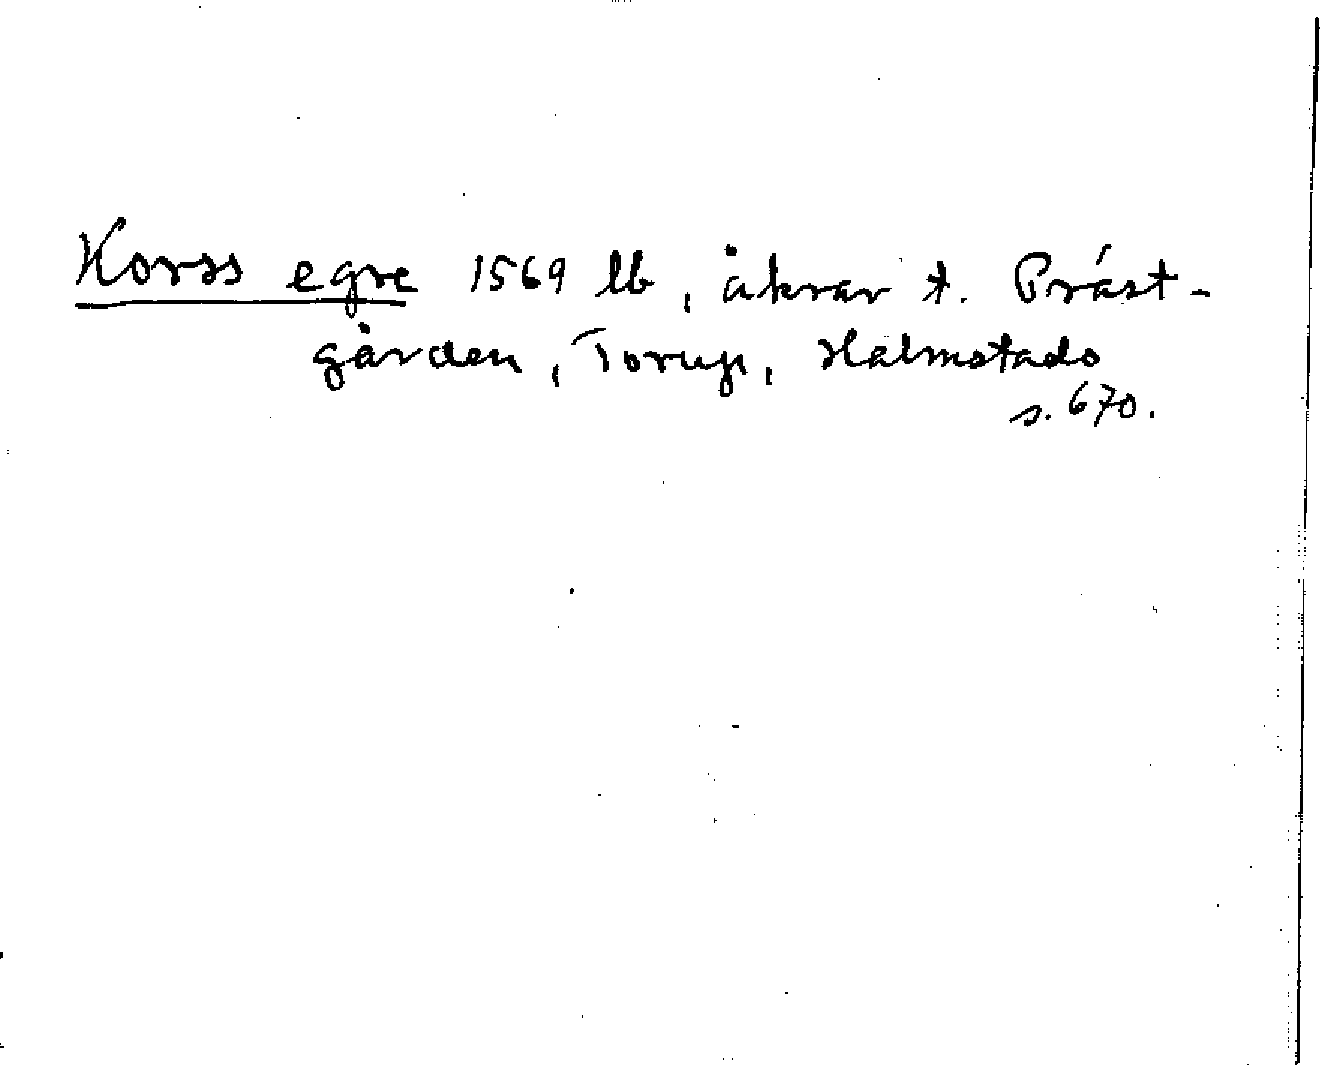 Korss egre 1569 lb, åkrar t. Präst-
gården, Torup, Halmstads
s. 670.